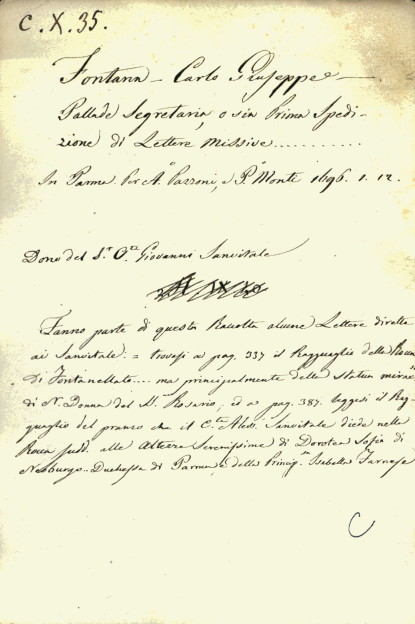 C. X. 35.
Fontana – Carlo Giuseppe –
Pallade Segretaria, o sia Prima Spedi-
zione di Lettere missive...........
In Parma. Per A.º Pazzoni, e P.º Monti 1696. 1. 12.
Dono del S.r C.te Giovanni Sanvitale
Fanno parte di questa Raccolta alcune Lettere dirette
ai Sanvitale. = trovasi a pag. 337 il Ragguaglio della Rocca
di Fontanellato... ma principalmente della statua mirac.
di N. Donna del SS. Rosario, ed a pag. 387. leggesi il Rag-
guaglio del pranzo che il C.te Aless. Sanvitale diede nella
Rocca sudd. alle Altezze Serenissime di Dorotea Sofia di
Neoburgo.. Duchessa di Parma e della Princip. Isabella Farnese
C